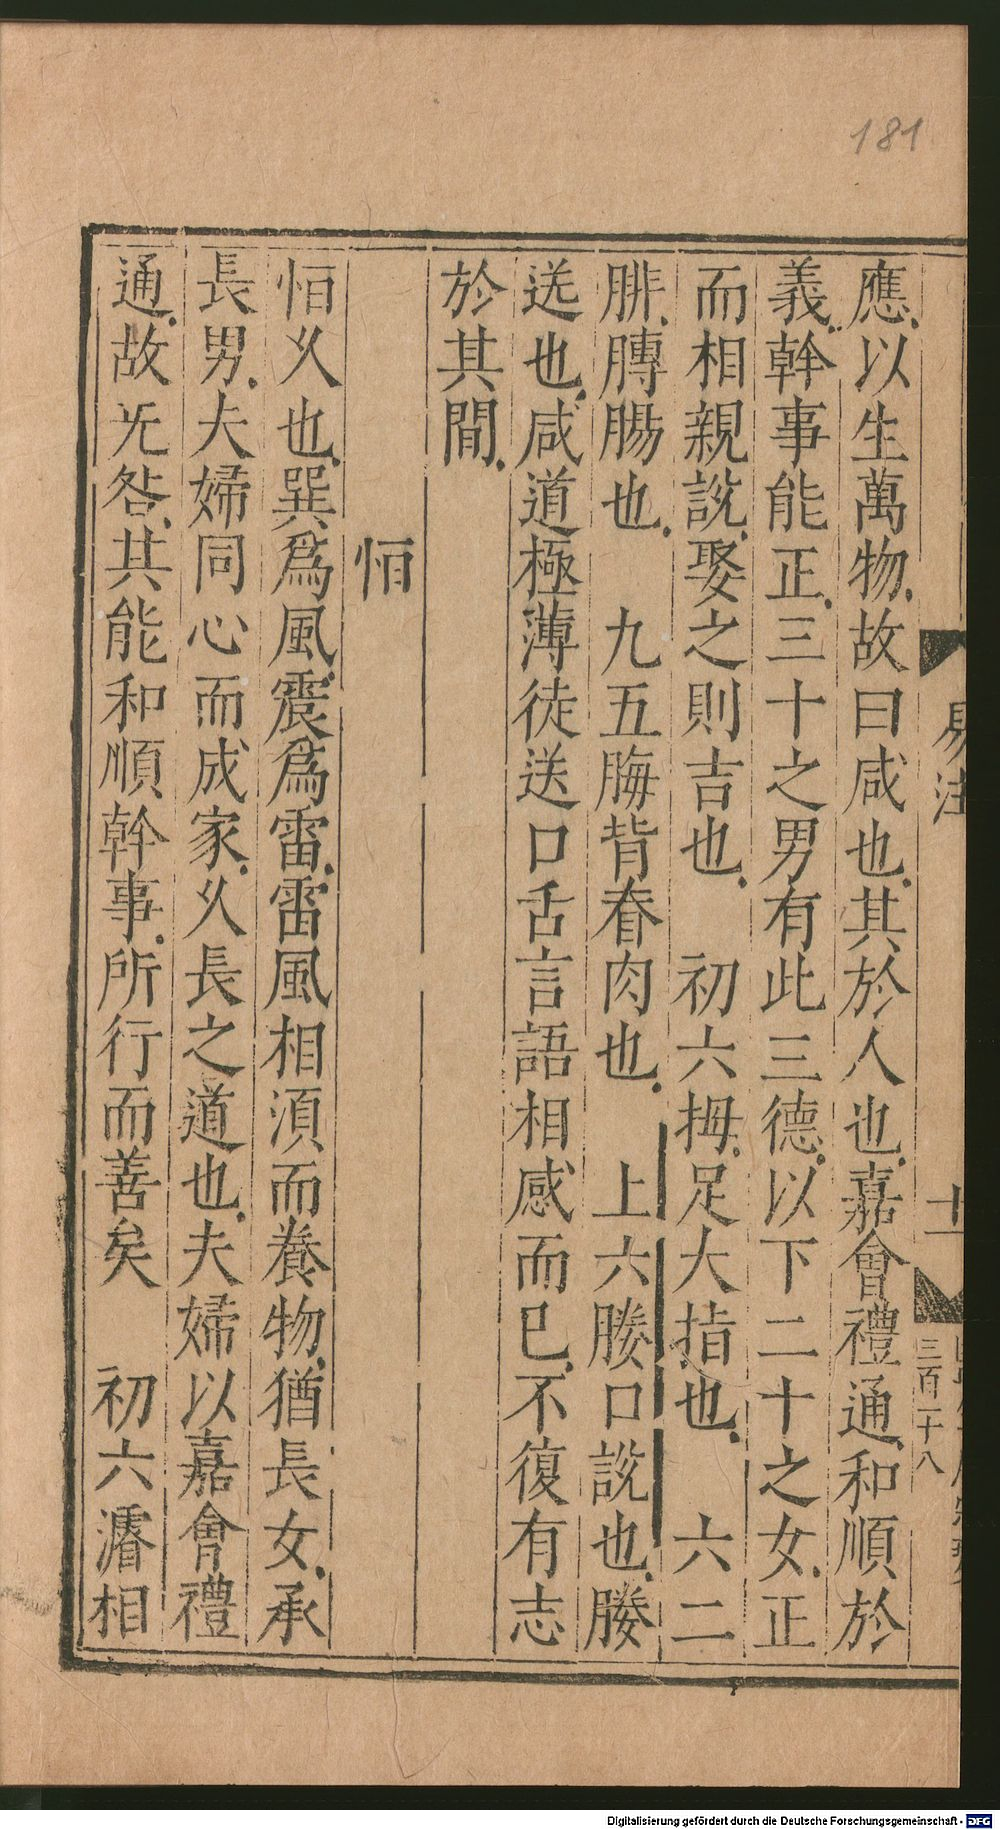 181
應以生萬物故曰咸也其於人也嘉會禮通和順於
義幹事能正三十之男有此三德以下二十之女正
而相親說娶之則吉也　初六拇足大指也　六二
腓膞腸也　九五脢背脊肉也　上六媵口說也媵
送也咸道極薄徒送口舌言語相感而已不復有志
於其間
恒
恒久也巽爲風震爲雷雷風相須而養物猶長女承
長男夫婦同心而成家久長之道也夫婦以嘉會禮
通故无咎其能和順幹事所行而善矣　初六濬相
易注
十一
三百二十八
Digitalisierung gefördert durch die Deutsche Forschungsgemeinschaft - DFG